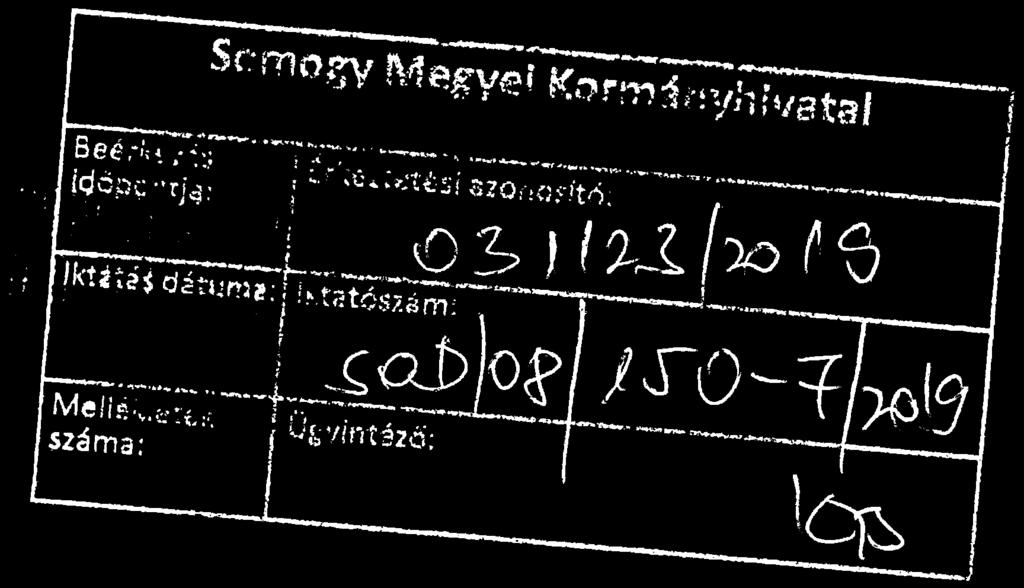 Somogy Megyei Kormányhivatal
Beérkezés időpontja:
Érkeztetési azonosító:
031/123/2019
Iktatás dátuma:
Iktatószám:
SOD/08/150-7/2019
Mellékletek száma:
Ügyintéző: